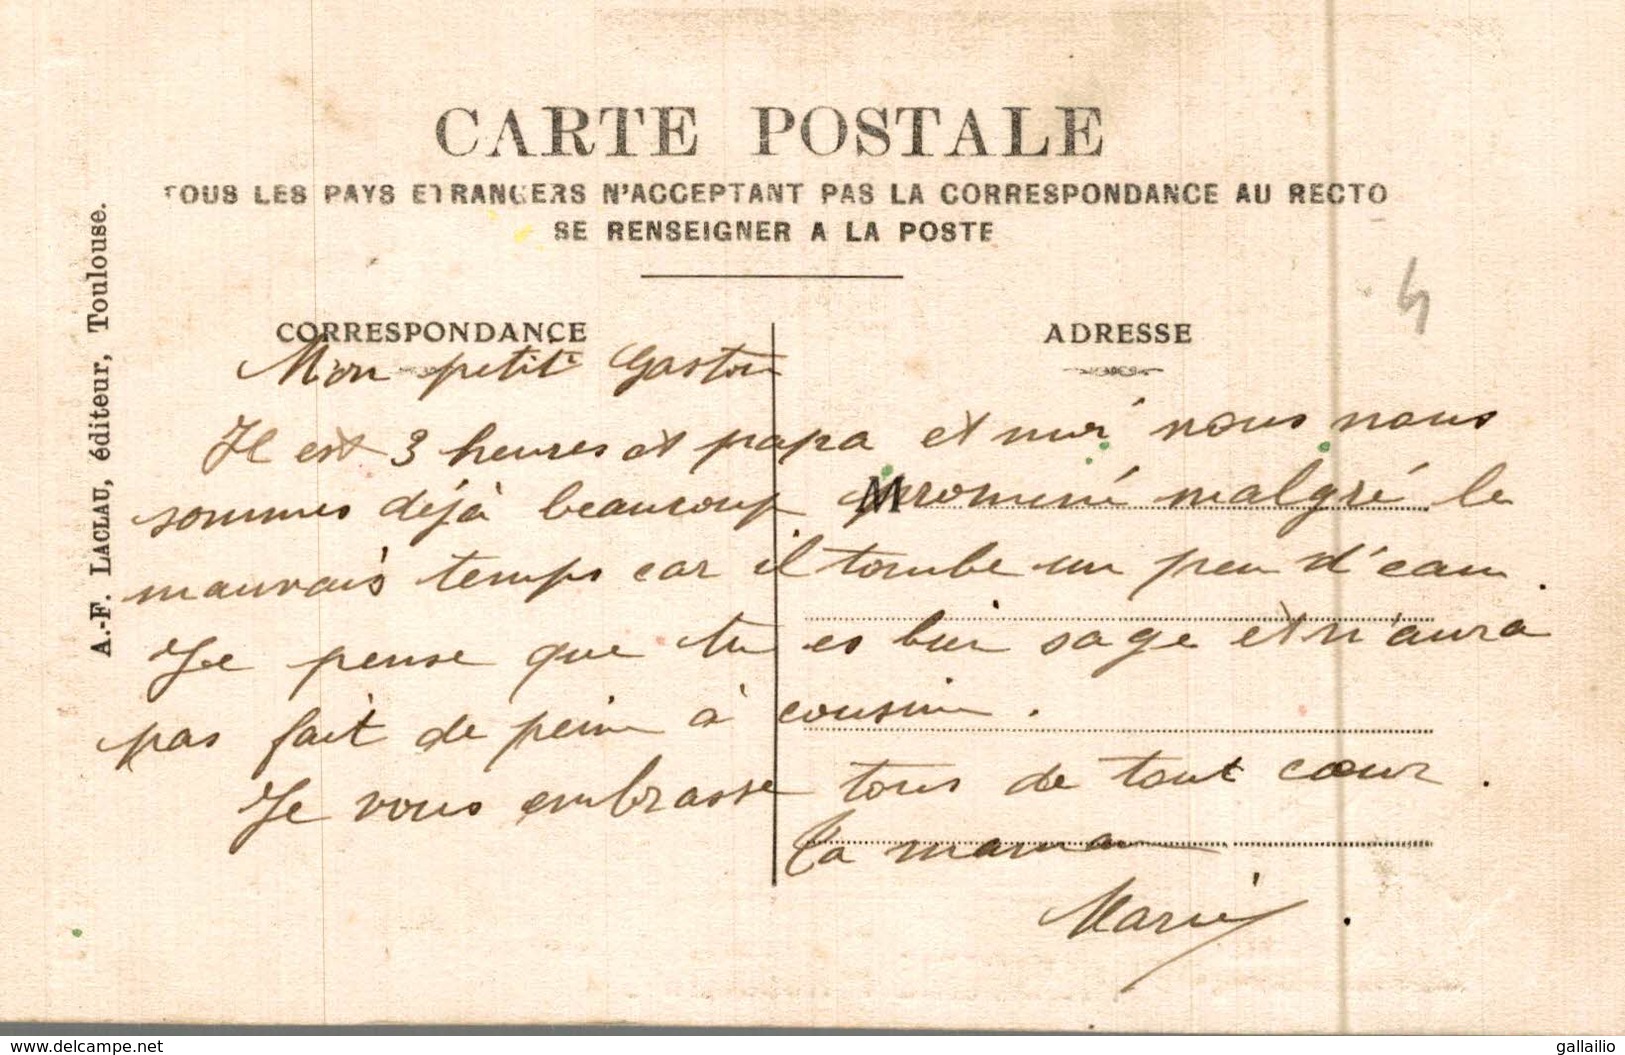 CARTE POSTALE
TOUS LES PAYS ETRANGERS N'ACCEPTANT PAS LA CORRESPONDANCE AU RECTO
SE RENSEIGNER A LA POSTE
A.-F. LACLAU, éditeur, Toulouse.
CORRESPONDANCE
ADRESSE
M
4
Mon petit Gaston
Il est 3 heures et papa et moi nous nous
sommes déjà beaucoup promené malgré le
mauvais temps car il tombe un peu d'eau.
Je pense que tu es bien sage et n'aura
pas fait de peine à cousine.
Je vous embrasse tous de tout cœur.
Ta maman
Marie.
www.delcampe.net
gallailio